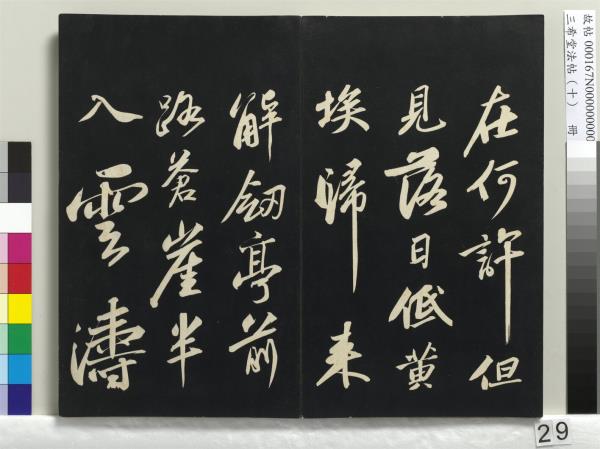 在何許但
見落日低黃
埃歸來
解劒亭前
路蒼崖半
入雲濤
故帖 000167N000000000
三希堂法帖(十) 冊
29